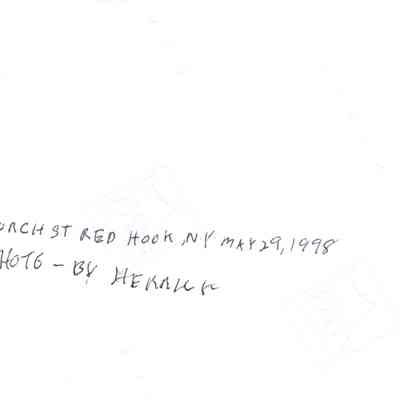 URCH ST RED HOOK, NY MAY 29, 1998
HOTO - BY HERRICK